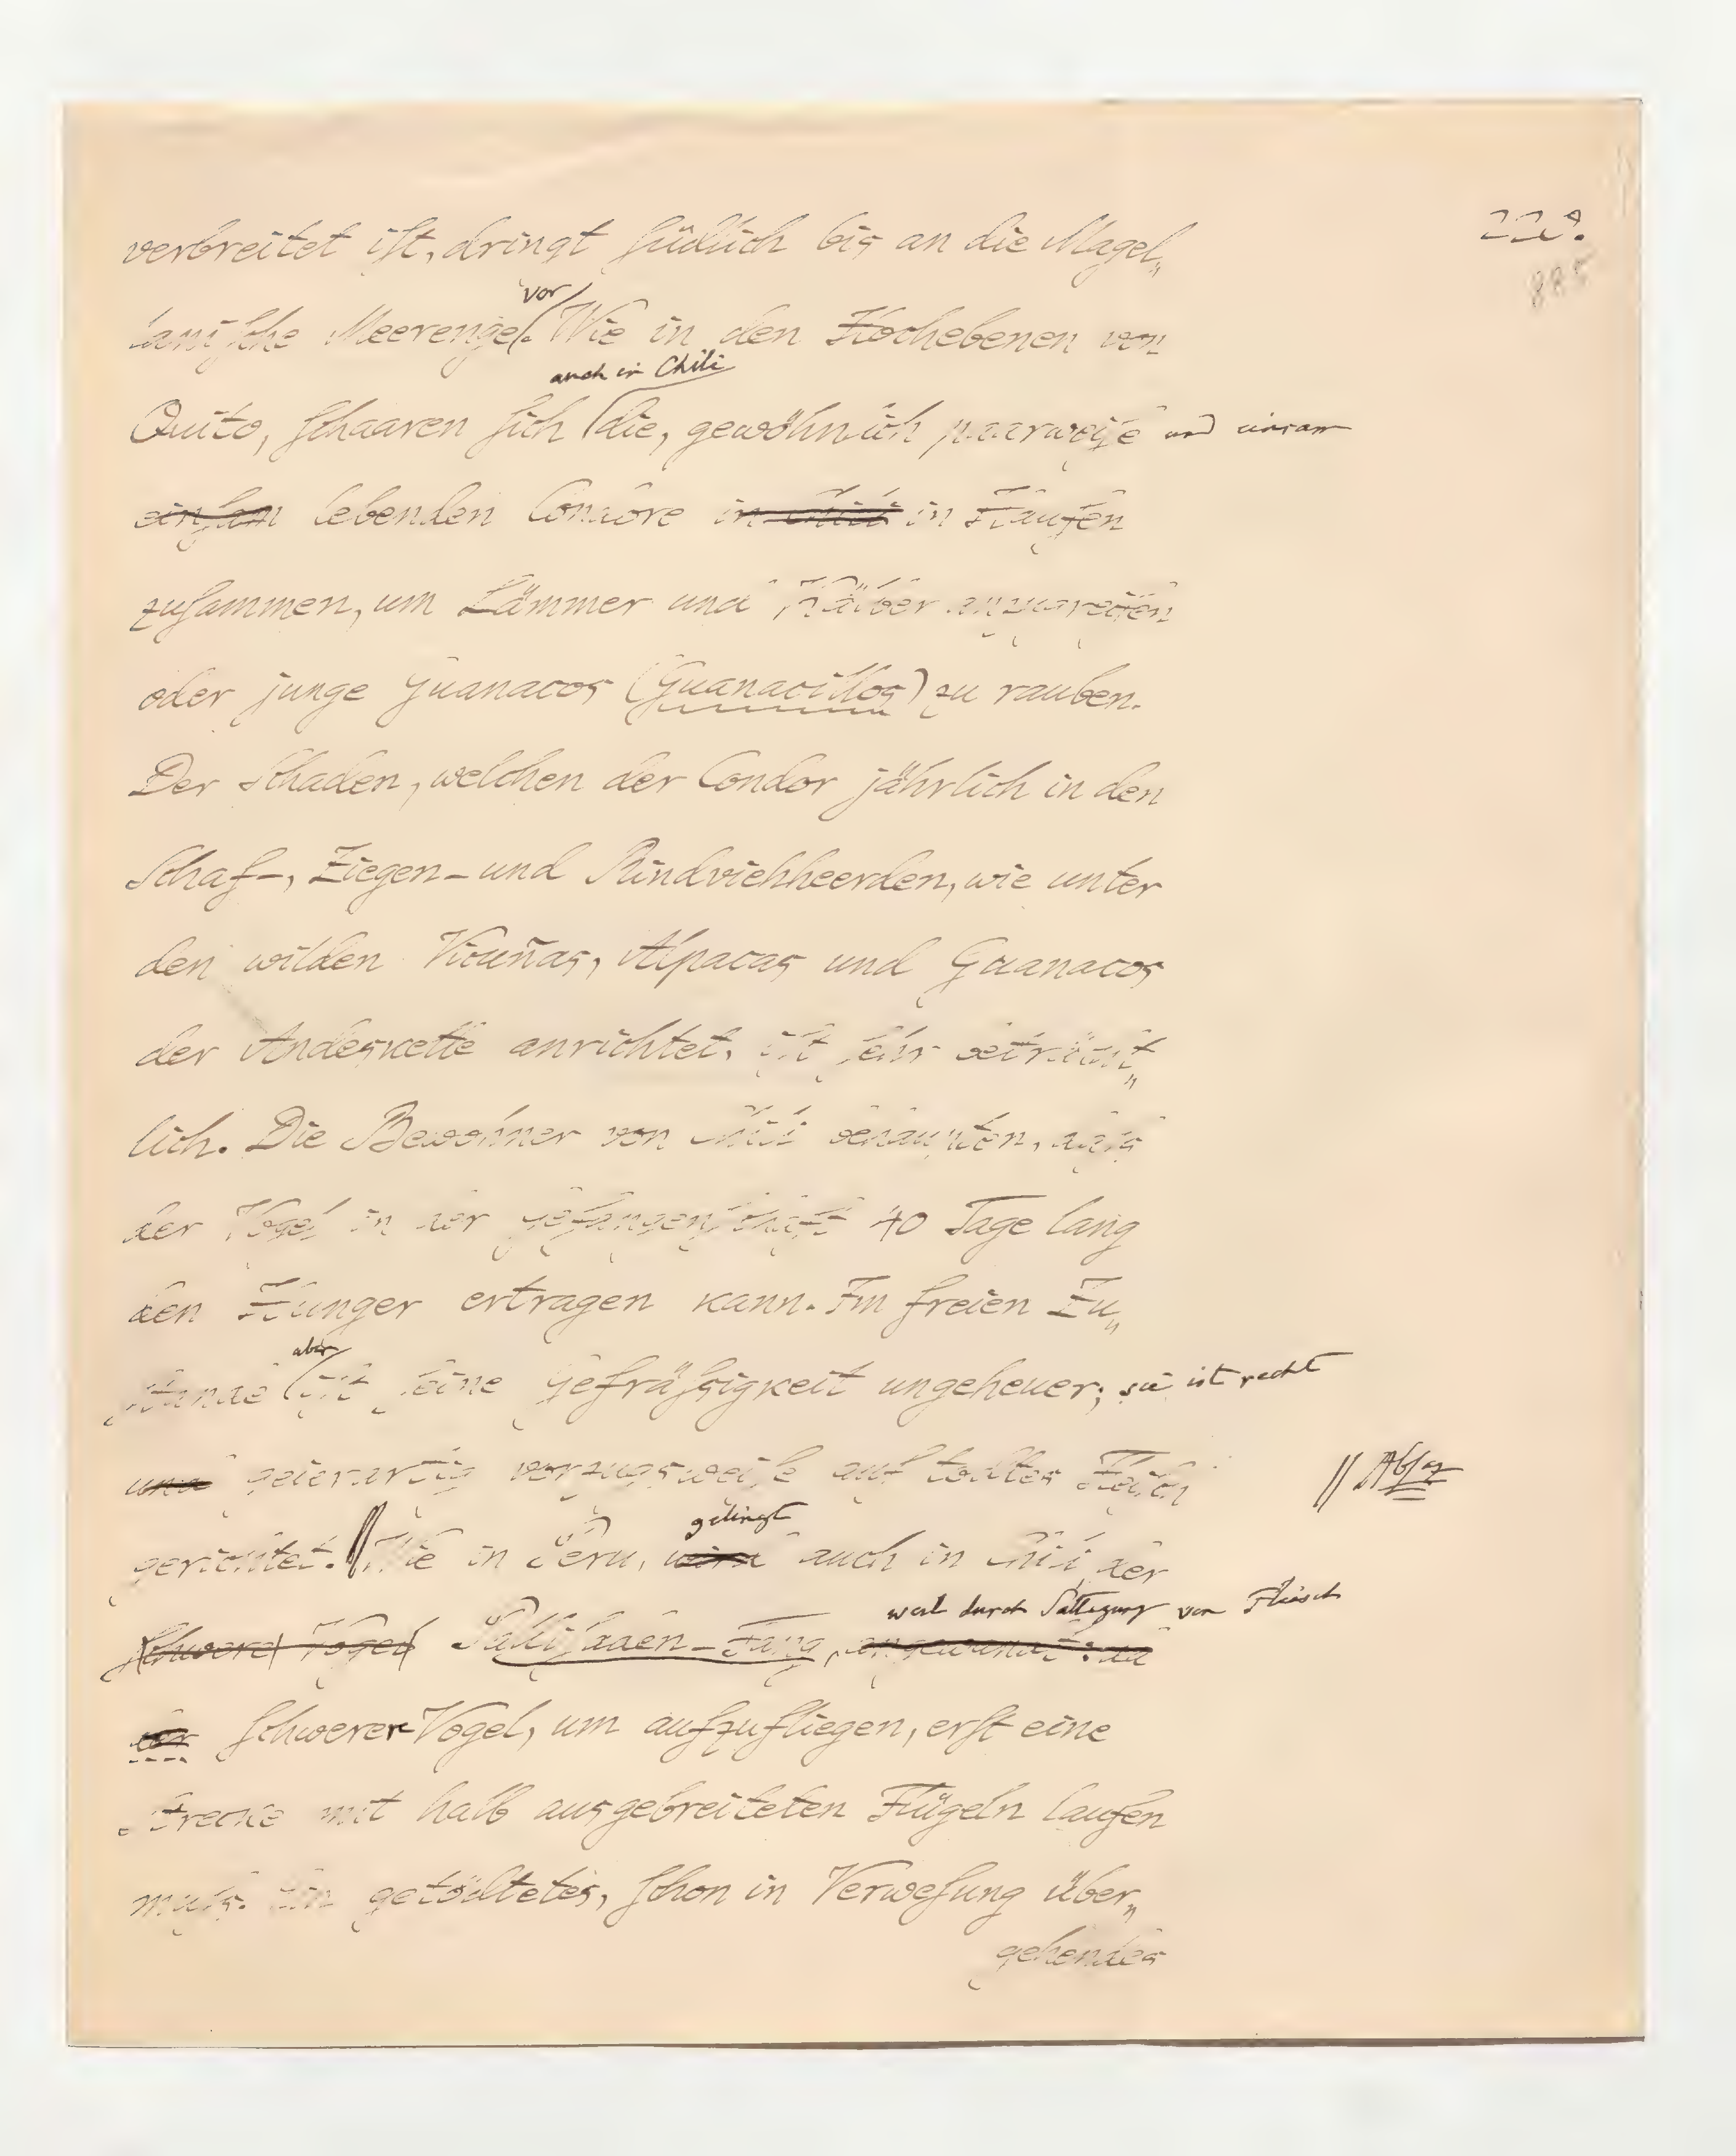 verbreitet ist, dringt südlich bis an die Magel„
lanische Meerenge vor. Wie in den Hochebenen von
auch in Chili
Quito, schaaren sich die, gewöhnlich paarweise und einsam
einsam lebenden Condore in Chili in Haufen
zusammen, um Lämmer und Kälber anzugreifen
oder junge Guanacos (Guanacillos) zu rauben.
Der Schaden, welchen der Condor jährlich in den
Schaf-, Ziegen- und Rindviehheerden, wie unter
den wilden Vicuñas, Alpacas und Guanacos
der Andeskette anrichtet, ist sehr beträcht„
lich. Die Bewohner von Chili behaupten, dass
der Vogel in der Gefangenschaft 40 Tage lang
den Hunger ertragen kann. Im freien Zu„
aber
stande ist seine Gefrässigkeit ungeheuer; sie ist recht
und geierartig vorzugsweise auf todtes Fleisch
// Absaz
gerichtet. Wie in Peru, wird auch in Chili der
gelingt
schwere Vogel Pallisaden-Fang, angewandt: da
weil durch Sättigung von Fleisch
der schwerer Vogel, um aufzufliegen, erst eine
Strecke mit halb ausgebreiteten Flügeln laufen
muss. Ein getödtetes, schon in Verwesung über„
gehendes